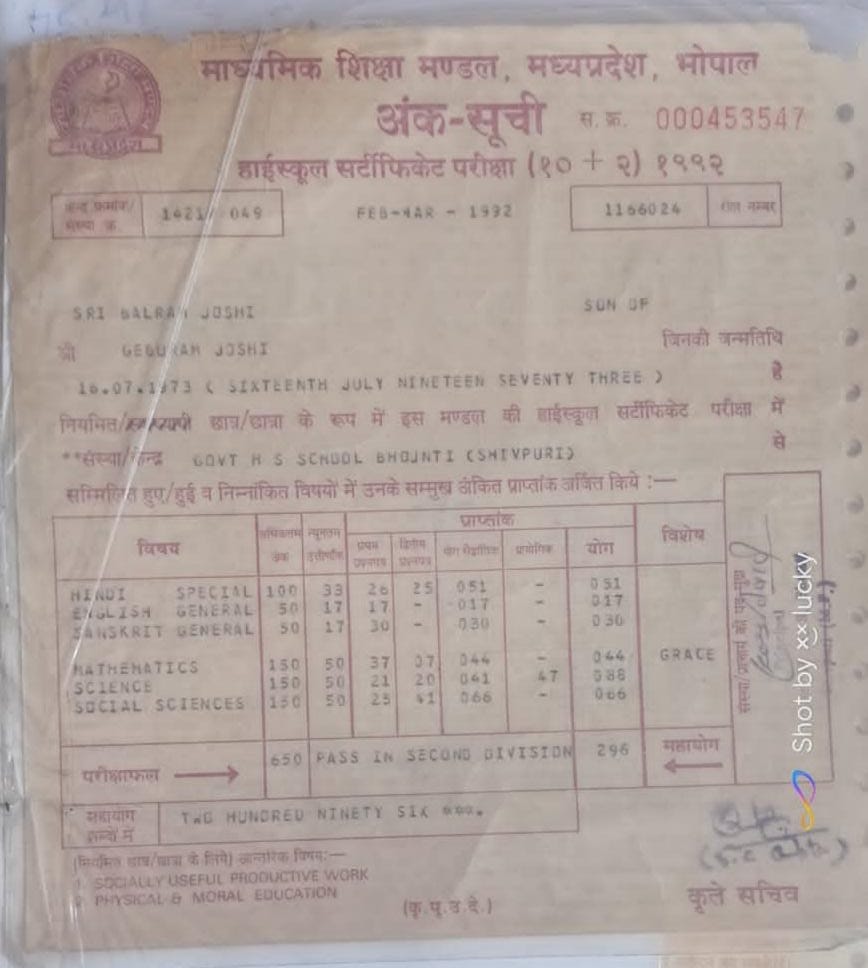 माध्यमिक शिक्षा मण्डल, मध्यप्रदेश, भोपाल
अंक-सूची स. क्र. 000453547
हाईस्कूल सर्टीफिकेट परीक्षा (१० + २) १९९२
केन्द्र क्रमांक/ संस्था क्र. 1421/ 049 FEB-MAR - 1992 1166024 रोल नम्बर
SRI BALRAM JOSHI SON OF
श्री GEBURAM JOSHI जिनकी जन्मतिथि
16.07.1973 ( SIXTEENTH JULY NINETEEN SEVENTY THREE ) है
नियमित/स्वाध्यायी छात्र/छात्रा के रूप में इस मण्डल की हाईस्कूल सर्टीफिकेट परीक्षा में
**संस्था/केन्द्र GOVT H S SCHOOL BHOJNTI (SHIVPURI) से
सम्मिलित हुए/हुई व निम्नांकित विषयों में उनके सम्मुख अंकित प्राप्तांक अर्जित किये :—
विषय अधिकतम अंक न्यूनतम उत्तीर्णांक प्राप्तांक विशेष
प्रथम प्रश्नपत्र द्वितीय प्रश्नपत्र योग सैद्धांतिक प्रायोगिक योग
HINDI SPECIAL 100 33 26 25 051 - 051
ENGLISH GENERAL 50 17 17 - 017 - 017
SANSKRIT GENERAL 50 17 30 - 030 - 030
MATHEMATICS 150 50 37 07 044 - 044 GRACE
SCIENCE 150 50 21 20 041 47 088
SOCIAL SCIENCES 150 50 25 41 066 - 066
परीक्षाफल → 650 PASS IN SECOND DIVISION 296 महायोग ←
महायोग शब्दों में TWO HUNDRED NINETY SIX ***.
(नियमित छात्र/छात्रा के लिये) आन्तरिक विषय:—
1. SOCIALLY USEFUL PRODUCTIVE WORK
2. PHYSICAL & MORAL EDUCATION
(कृ.पृ.उ.दे.)
कृते सचिव
Shot by xx lucky